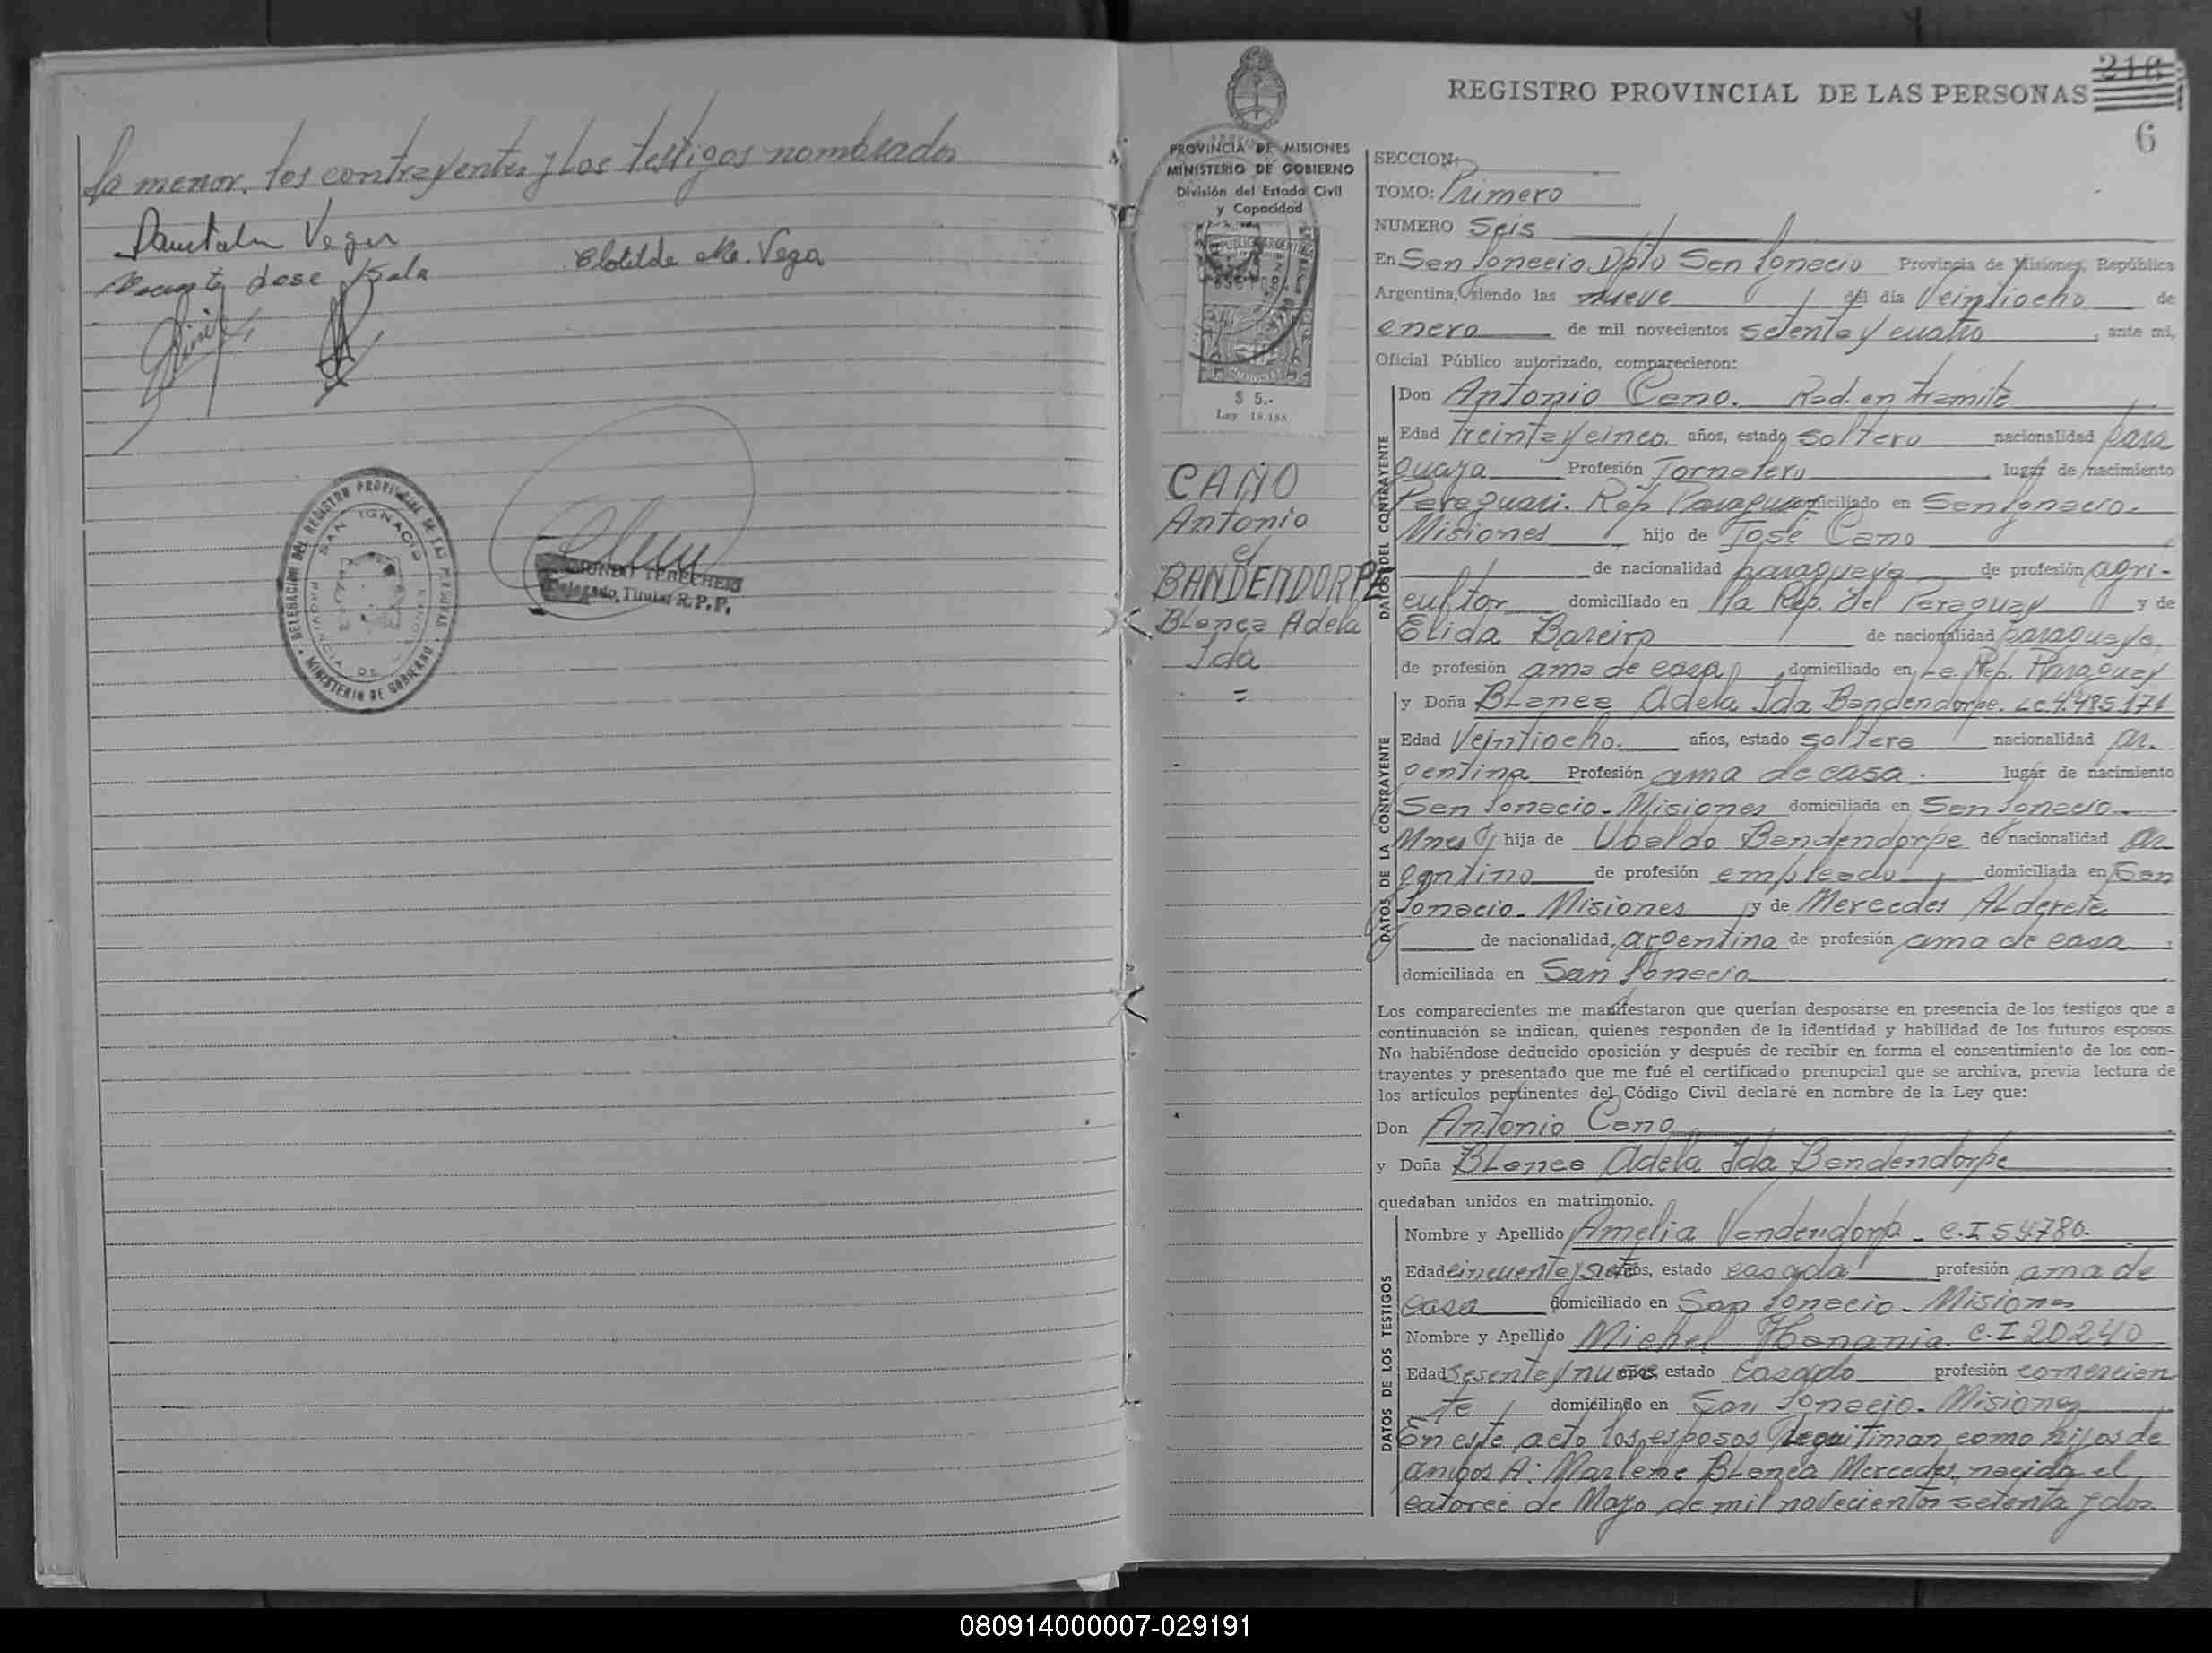 la menor, los contrayentes y los testigos nombrados
Vega
Clotilde Ma. Vega
Jose
DELEGACION DEL REGISTRO PROVINCIAL DE LAS PERSONAS
SAN IGNACIO
PROVINCIA DE MISIONES
MINISTERIO DE GOBIERNO
Delegado Titular R.P.P.
REGISTRO PROVINCIAL DE LAS PERSONAS
6
PROVINCIA DE MISIONES
MINISTERIO DE GOBIERNO
División del Estado Civil
y Capacidad
$ 5.-
Ley 18.188
CAÑO
Antonio
y
BANDENDORPE
Blanca Adela
Ida
=
SECCION:
TOMO: Primero
NUMERO Seis
En San Ignacio Dpto San Ignacio Provincia de Misiones, República
Argentina, siendo las nueve del día Veintiocho de
enero de mil novecientos setenta y cuatro, ante mi,
Oficial Público autorizado, comparecieron:
DATOS DEL CONTRAYENTE
Don Antonio Cano. Rad. en tramite
Edad treinta y cinco años, estado soltero nacionalidad para
guaya Profesión Jornalero lugar de nacimiento
Paraguari. Rep Paraguay domiciliado en San Ignacio.
Misiones hijo de José Cano
de nacionalidad paraguaya de profesión agri-
cultor domiciliado en la Rep. del Paraguay y de
Elida Bareiro de nacionalidad paraguaya,
de profesión ama de casa, domiciliado en La Rep. Paraguay
DATOS DE LA CONTRAYENTE
y Doña Blanca Adela Ida Bandendorpe. LC.4.485.171
Edad Veintiocho. años, estado soltera nacionalidad ar-
gentina Profesión ama de casa. lugar de nacimiento
San Ignacio-Misiones domiciliada en San Ignacio-
Mnes hija de Ubaldo Bandendorpe de nacionalidad ar
gentino de profesión empleado domiciliada en San
Ignacio-Misiones y de Mercedes Alderete
de nacionalidad argentina de profesión ama de casa
domiciliada en San Ignacio
Los comparecientes me manifestaron que querían desposarse en presencia de los testigos que a
continuación se indican, quienes responden de la identidad y habilidad de los futuros esposos.
No habiéndose deducido oposición y después de recibir en forma el consentimiento de los con-
trayentes y presentado que me fué el certificado prenupcial que se archiva, previa lectura de
los artículos pertinentes del Código Civil declaré en nombre de la Ley que:
Don Antonio Cano
y Doña Blanca Adela Ida Bandendorpe
quedaban unidos en matrimonio.
DATOS DE LOS TESTIGOS
Nombre y Apellido Amelia Vandendorp - C.I 54780.
Edad cincuenta y siete años, estado casada profesión ama de
casa domiciliado en San Ignacio-Misiones
Nombre y Apellido Michel Hanania. C.I 20240
Edad sesenta y nueve años, estado Casado profesión comercian
te domiciliado en San Ignacio-Misiones
En este acto los esposos legitiman como hijos de
ambos A: Marlene Blanca Mercedes, nacida el
catorce de Mayo de mil novecientos setenta y dos
080914000007-029191